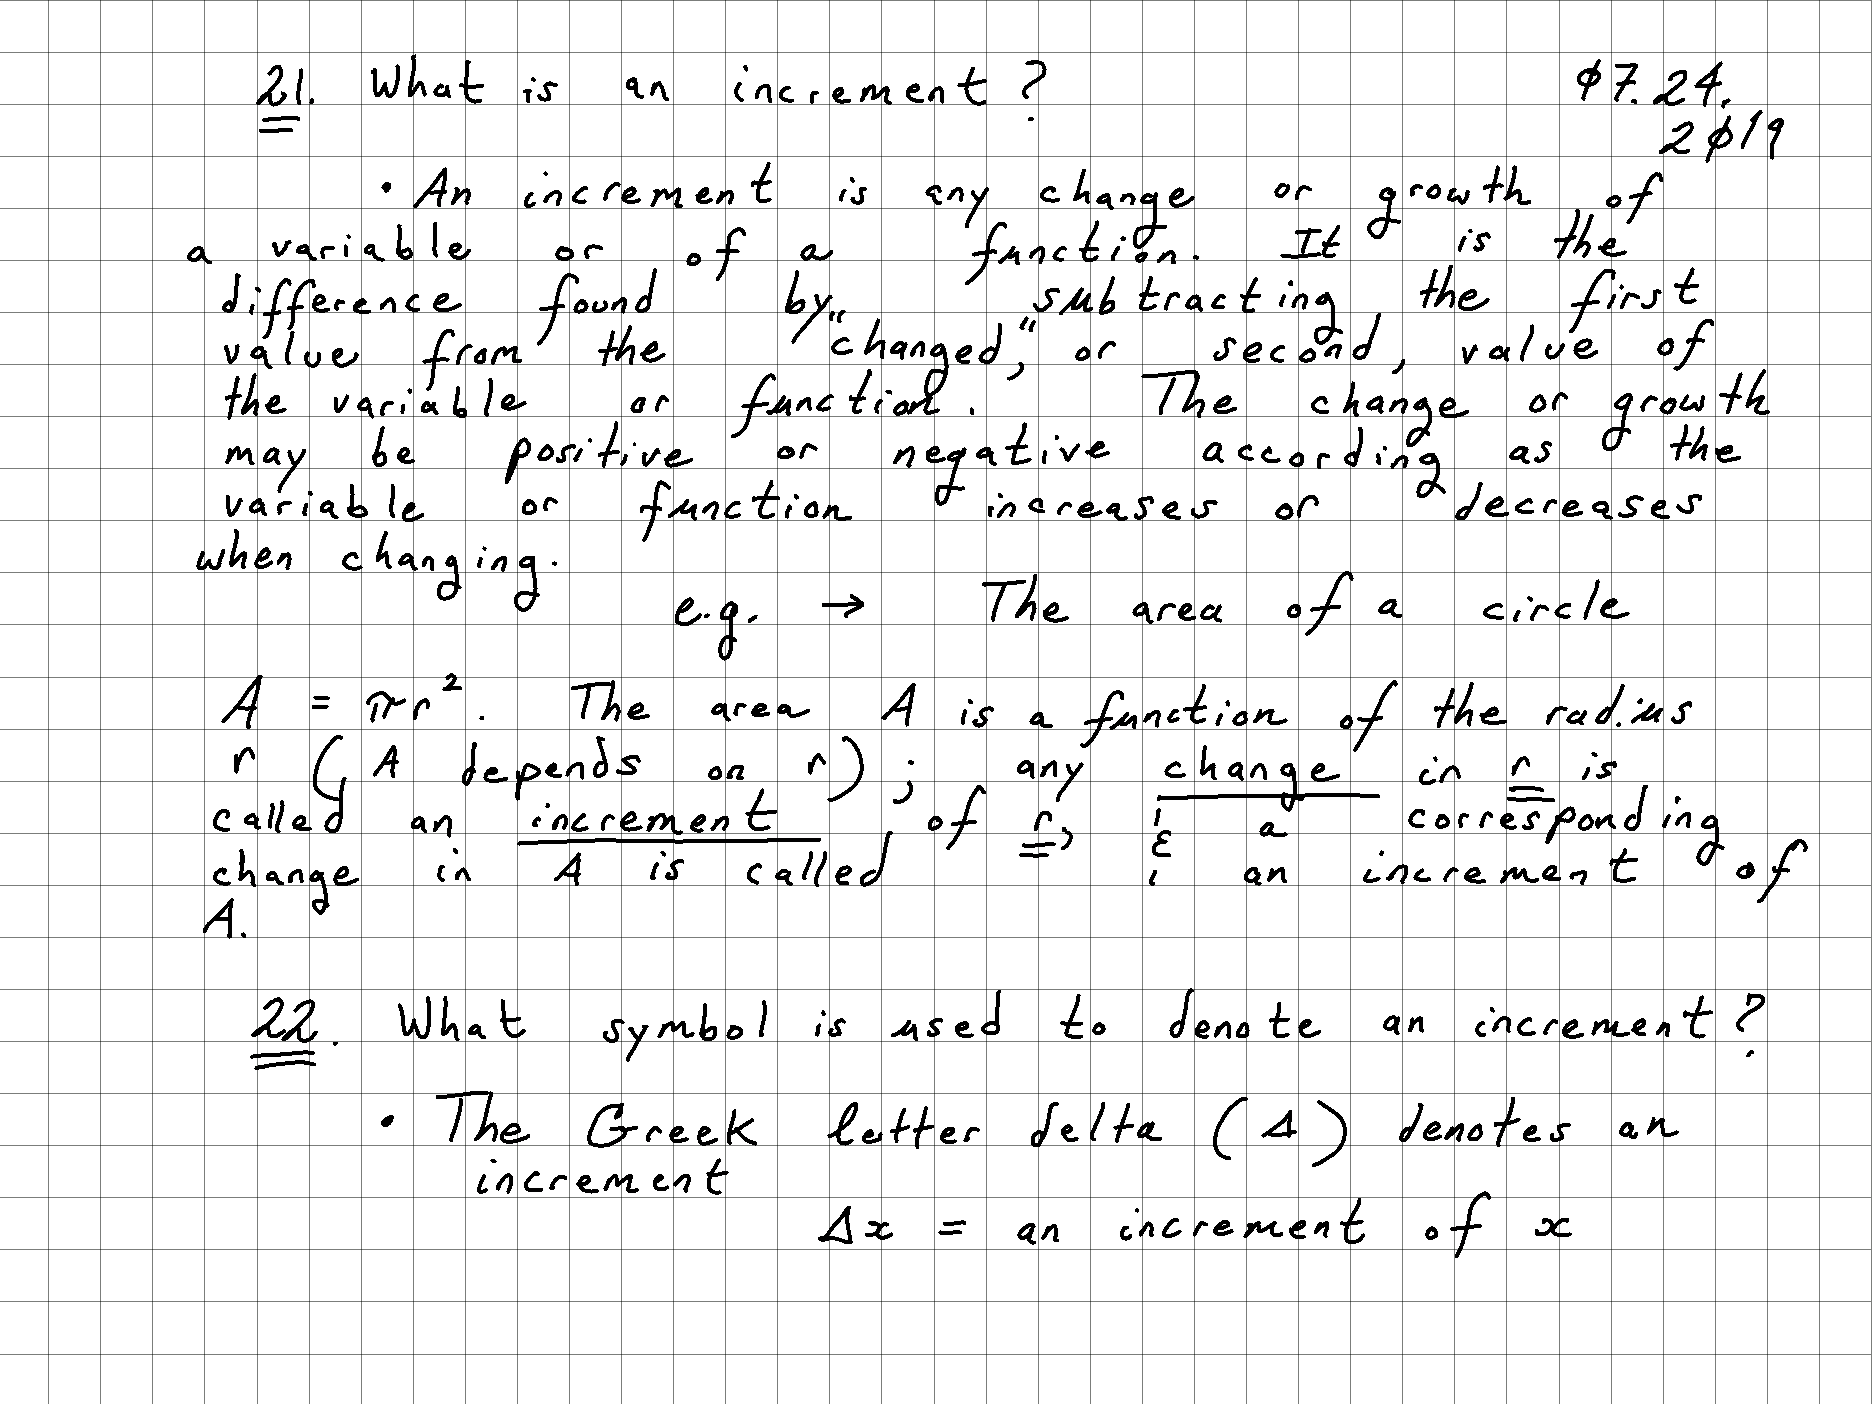 21. What is an increment?
07.24.
2019
• An increment is any change or growth of
a variable or of a function. It is the
difference found by subtracting the first
value from the "changed," or second, value of
the variable or function. The change or growth
may be positive or negative according as the
variable or function increases or decreases
when changing.
e.g. → The area of a circle
A = πr². The area A is a function of the radius
r (A depends on r); any change in r is
called an increment of r, & a corresponding
change in A is called an increment of
A.
22. What symbol is used to denote an increment?
• The Greek letter delta (Δ) denotes an
increment
Δx = an increment of x